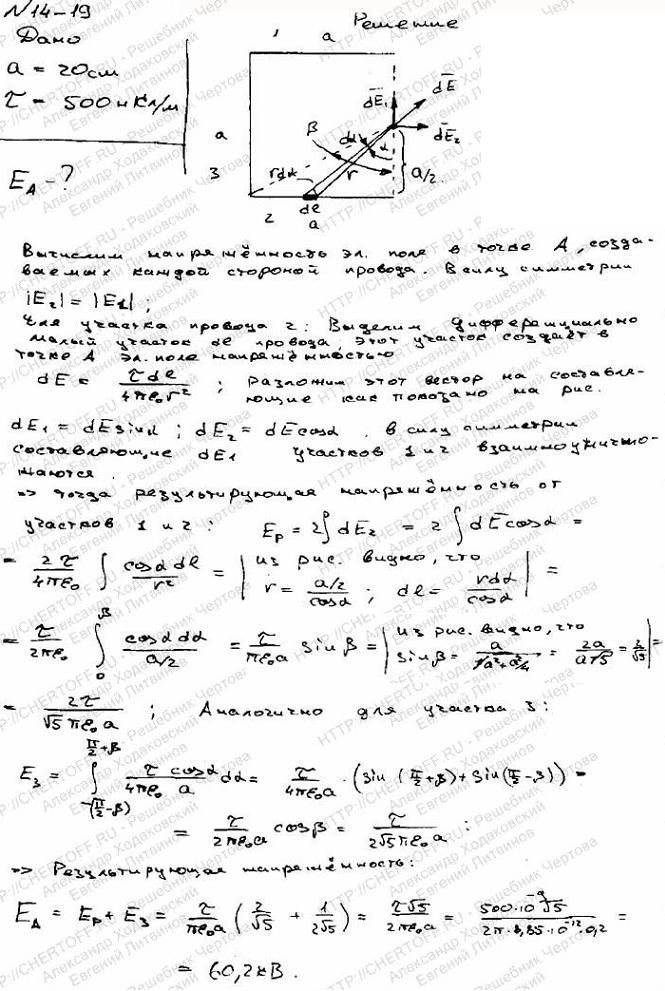 N14-19
Дано
Решение
a = 20см
τ - 500 нКл/м
E_A - ?
a
a
3
2
a
dl
β
dα
α
r
rdα
dE₁
dE
dE₂
a/2
Вычислим напряжённость эл. поле в точке A, созда-
ваемых каждой стороной провода. В силу симметрии
|E₂| = |E₁| ;
Для участка провода 2: Выделим дифференциально
малый участок dl провода, этот участок создаёт в
точке A эл. поле напряжённостью
dE = τdl / 4πε₀r² ; разложим этот вектор на составля-
ющие как показано на рис.
dE₁ = dE sinα ; dE₂ = dE cosα . В силу симметрии
составляющие dE₁ участков 1 и 2 взаимоуничто-
жаются.
=> тогда результирующая напряжённость от
участков 1 и 2 : E_p = 2∫dE₂ = 2∫dE cosα =
= 2τ/4πε₀ ∫ cosα dl / r² = | из рис. видно, что r = (a/2)/cosα ; dl = rdα/cosα | =
= τ/2πε₀ ∫₀^β cosα dα / (a/2) = τ/πε₀a sinβ = | из рис. видно, что sinβ = a/√(a²+a²/4) = 2a/a√5 = 2/√5 | =
= 2τ/√5 πε₀a ; Аналогично для участка 3:
E₃ = ∫_{-(π/2-β)}^{π/2+β} τ cosα / 4πε₀ a dα = τ/4πε₀a · (sin(π/2+β) + sin(π/2-β)) =
= τ/2πε₀a cosβ = τ/2√5πε₀a :
=> Результирующая напряжённость:
E_A = E_p + E₃ = τ/πε₀a (2/√5 + 1/2√5) = τ√5/2πε₀a = 500·10⁻⁹√5 / 2π·8,85·10⁻¹²·0,2 =
= 60,2 кВ.
HTTP://CHERTOFF.RU - Решебник Чертова
Александр Ходаковский
Евгений Литвинов